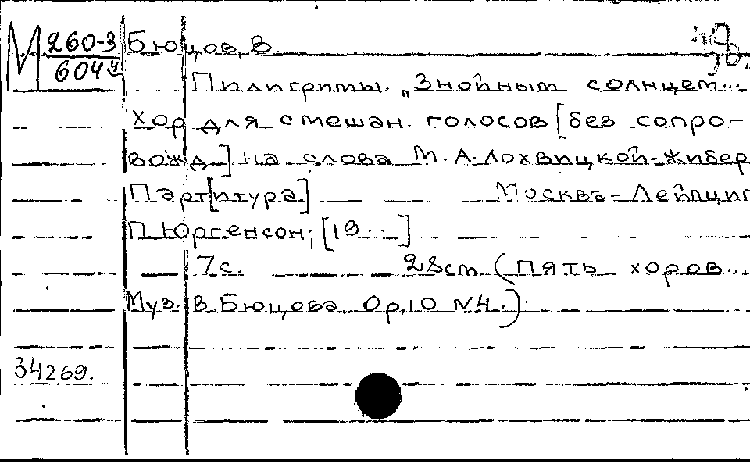 М 260-3
604
Бюцов, В.
Пилигримы. „Знойным солнцем...
Хор для смешан. голосов [без сопро-
вожд.] на слова М. А. Лохвицкой-Жибер
Парт[итура.] Москва-Лейпциг
П. Юргенсон, [19...]
7с. 28cm (Пять хоров...
Муз. В. Бюцова. Op.10 №4.)
34269.